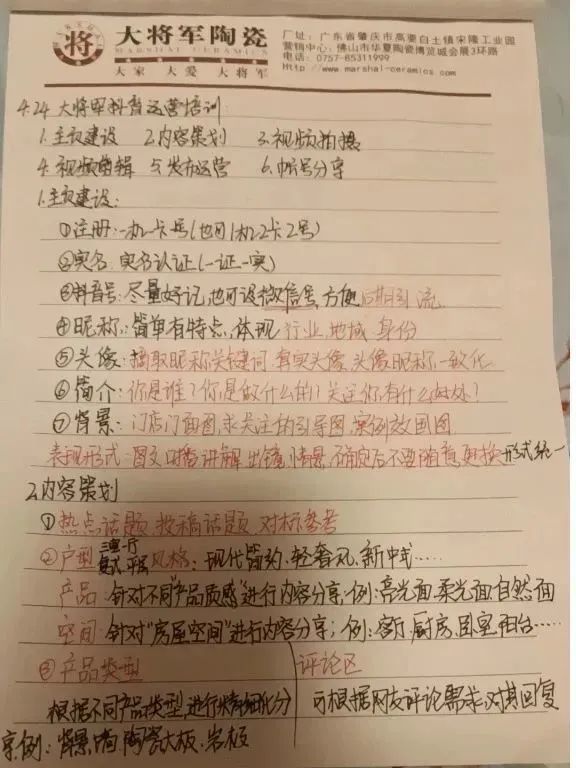 将
大将军陶瓷
MARSHAL CERAMICS
大家 大爱 大将军
厂址:广东省肇庆市高要白土镇宋隆工业园
营销中心:佛山市华夏陶瓷博览城会展3环路
电话:0757-85311999
Http://www.marshal-ceramics.com
4.24大将军抖音运营培训
1.主页建设 2.内容策划 3.视频拍摄
4.视频剪辑 5.发布运营 6.帐号分享
1.主页建设:
①注册:一机一卡一号(也可1机2卡2号)
②实名:实名认证(一证一实)
③抖音号:尽量好记,也可设微信号,方便后期引流
④昵称:简单有特点,体现行业,地域,身份
⑤头像:摘取昵称关键词,真实头像,头像昵称一致化
⑥简介:你是谁?你是做什么的?关注你有什么好处?
⑦背景:门店门面图,求关注的引导图,案例效果图
表现形式:图文,口播,讲解,出镜,情景,确定后不要随意更换 形式统一
2.内容策划
①热点话题,投稿话题,对标参考
②户型 三室一厅 复式、平层 风格:现代简约、轻奢风、新中式……
产品:针对不同“产品质感”进行内容分享;例:亮光面,柔光面,自然面
空间:针对“房屋空间”进行内容分享;例:客厅,厨房,卧室,阳台……
③产品类型 评论区
根据不同产品类型,进行精细化分 可根据网友评论需求,对其回复
享,例:背景墙,陶瓷大板、岩板